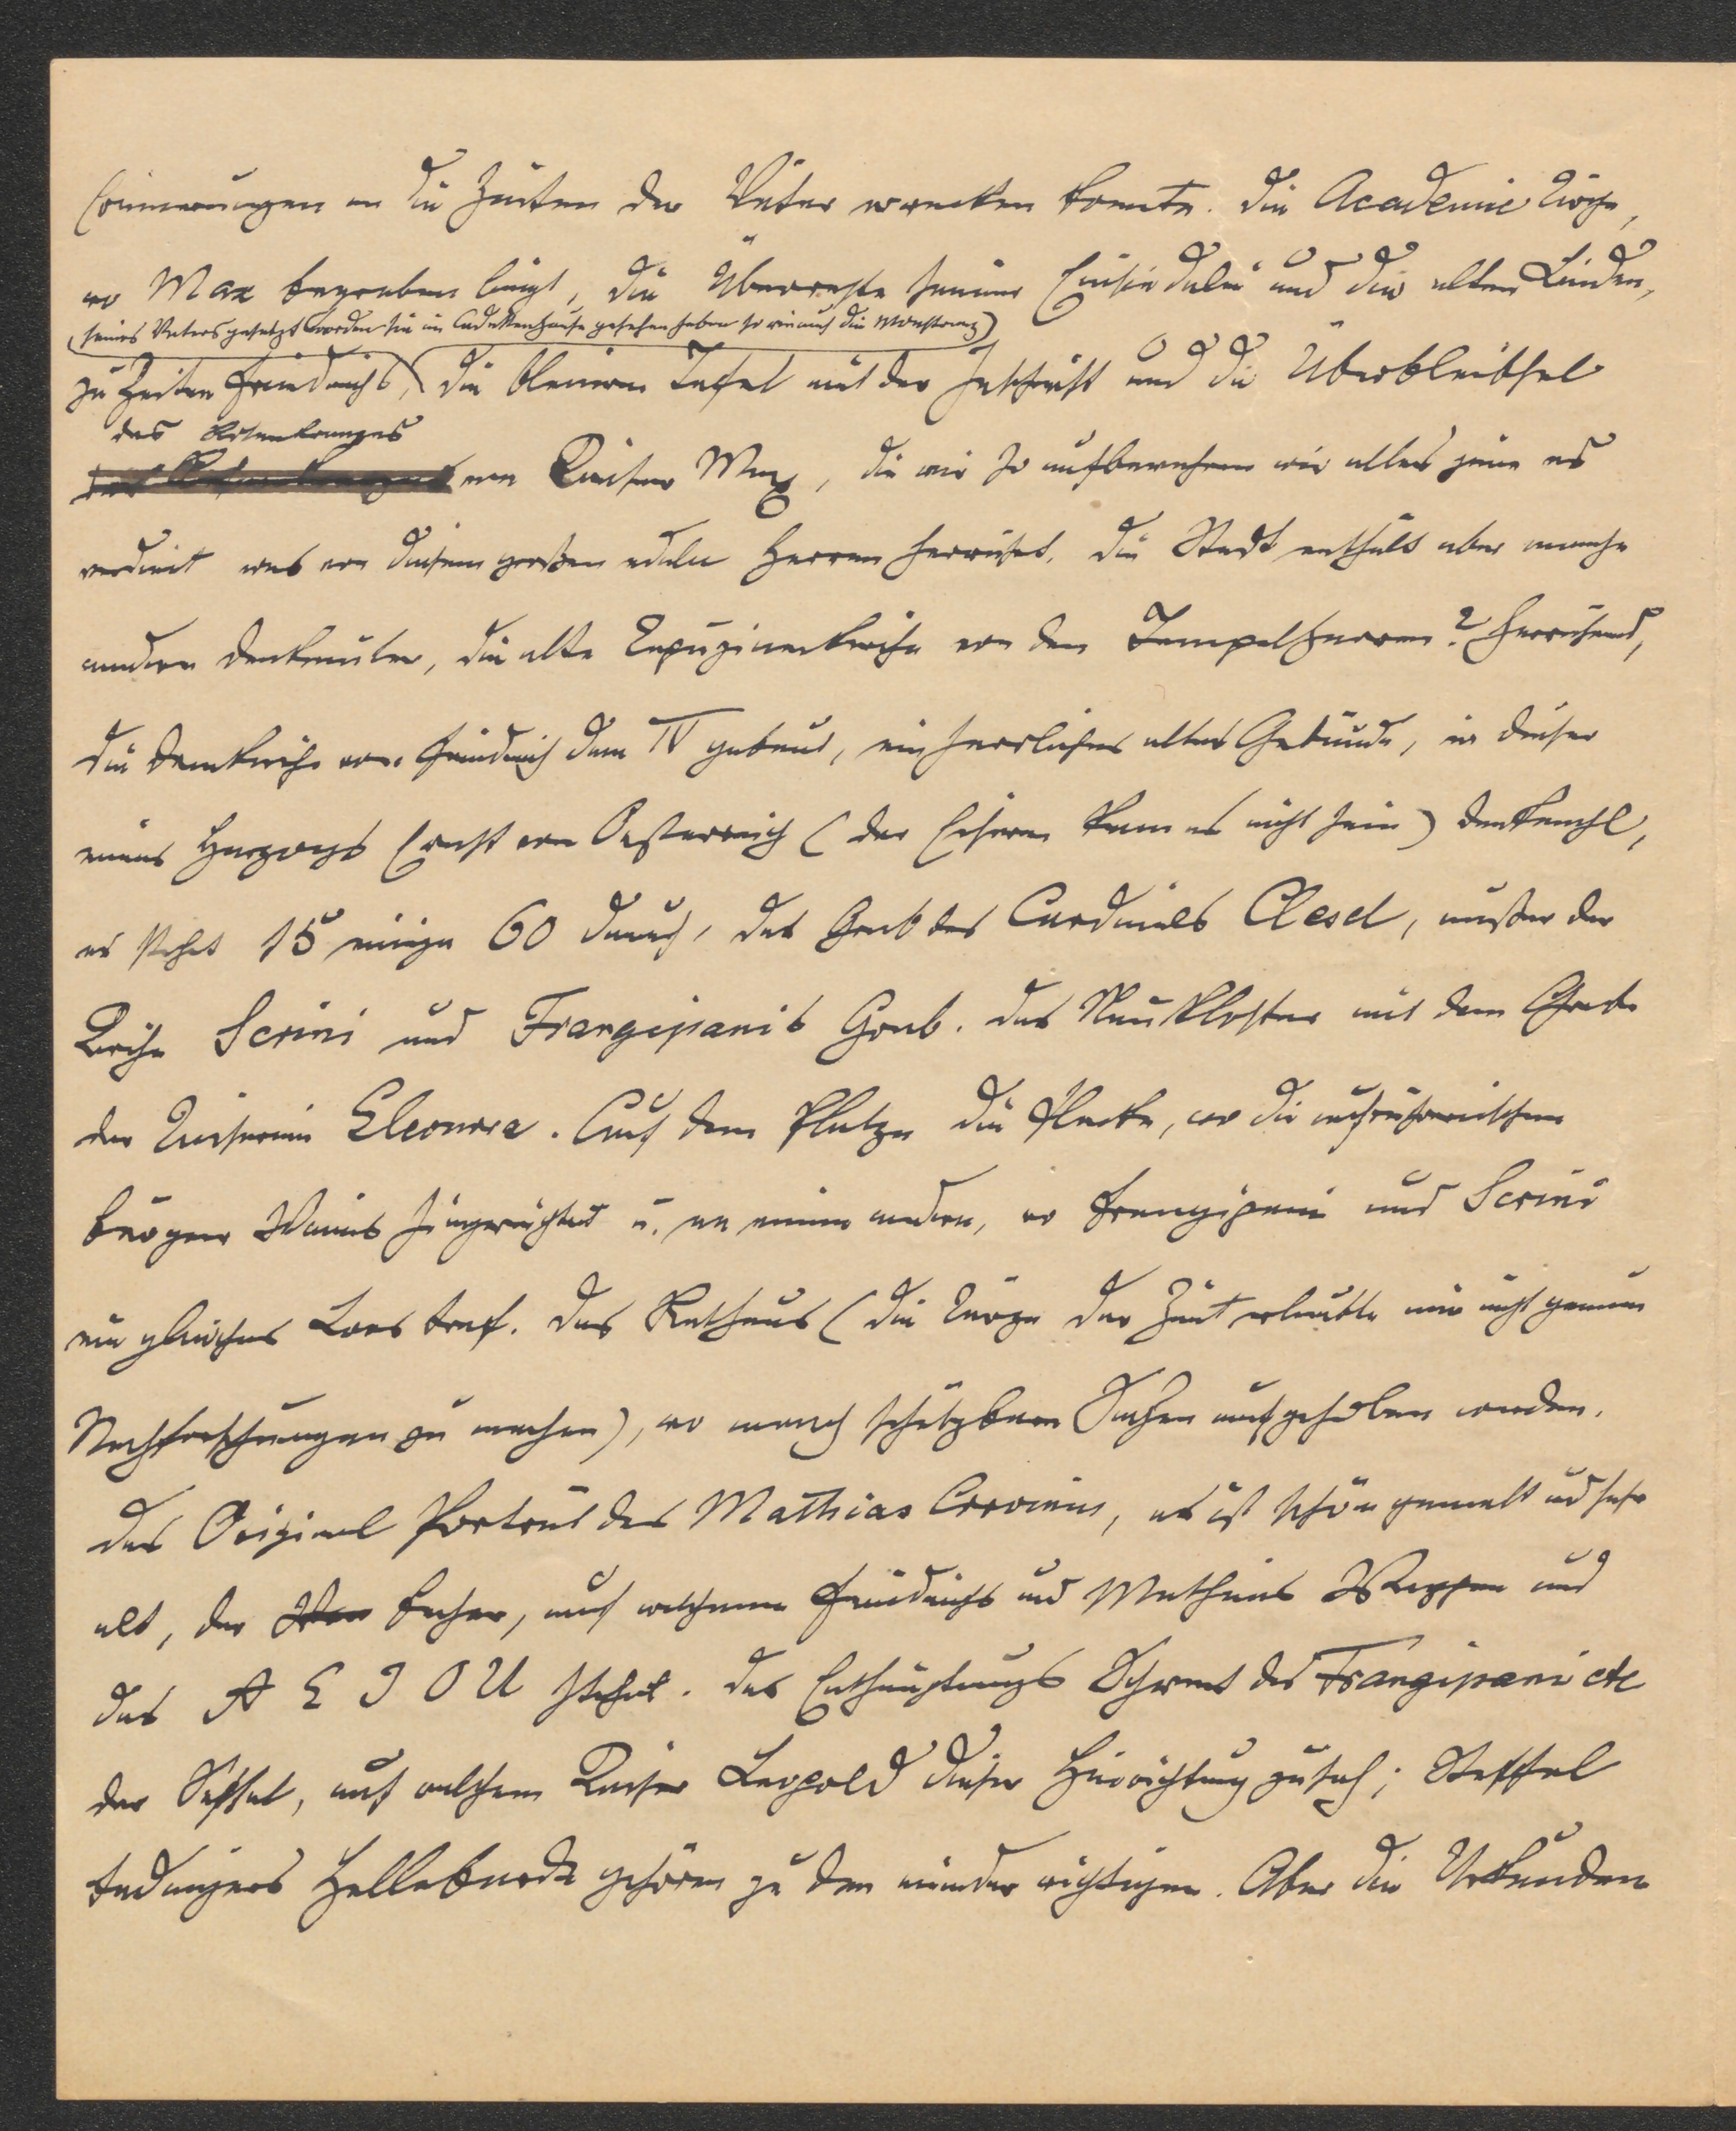 Erinnerungen an die Zeiten der Väter erwecken konnte. Die Academie Kirche,
wo Max begraben liegt, die Überreste seiner Einsiedelei und die alten Linden,
(seines Vaters gesetzt worden sie im Cadettenhause gesehen haben so wie auch die Monstranz)
zu Zeiten Friedrichs, die bleierne Tafel mit der Inschrift und die Überbleibsel
des Rosenkranzes
von Kaiser Max, die wir so aufbewahren wie alles jene es
verdient was von diesem großen edeln Herren herrührt. Die Stadt enthält aber manche
andere Denkmäler, die alte Kapuzinerkirche von den Tempelherren? herrührend,
die Domkirche von Friedrich dem IV gebaut, ein herrliches altes Gebäude, in dieser
eines Herzogs Ernst von Oesterreich (der Eiserne kann es nicht sein) Denkmahl,
es stehet 15 einige 60 darauf, das Grab des Cardinals Clesel, außer der
Kirche Serini und Frangipanis Grab. Das Neukloster mit dem Grabe
der Kaiserin Eleonora. Auf dem Platze die Stelle, wo die aufrührerischen
Bürger Wiens hingerichtet u. an einem andern, wo Frangipani und Serini
ein gleiches Loos traf. Das Rathaus (die Kürze der Zeit erlaubte mir nicht genaue
Nachforschungen zu machen), wo manch schätzbare Sachen aufgehoben werden.
Das Original Portrait des Mathias Corvinus, es ist schön gemalt und sehr
alt, der Becher, auf welchem Friedrichs und Mathias Wappen und
das A E I O U stehet. Das Enthauptungs Schwert des Frangipani etc
der Sessel, auf welchem Kaiser Leopold dieser Hinrichtung zusah; Steffel
Fadingers Hellebarde gehören zu den minder wichtigen. Aber die Urkunden